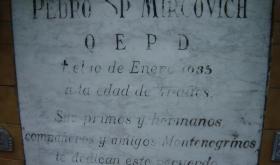 PEDRO SP MIRCOVICH
Q E P D
† el 10 de Enero 1935
a la edad de años.
Sus primos y hermanos
compañeros y amigos Montenegrinos
le dedican este recuerdo